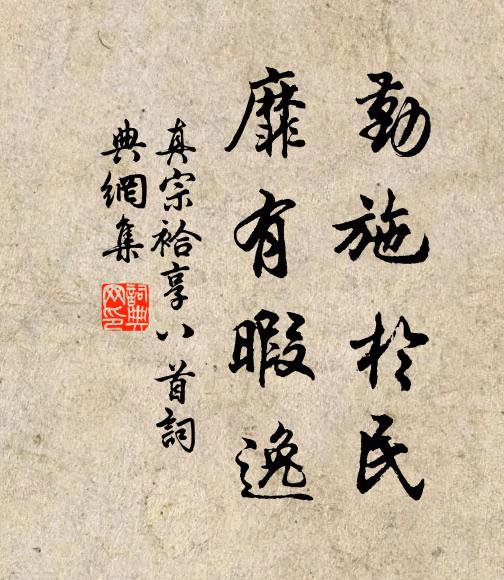 勤施於民
靡有暇逸
真宗祫享八首詞
典網集
詞典网印